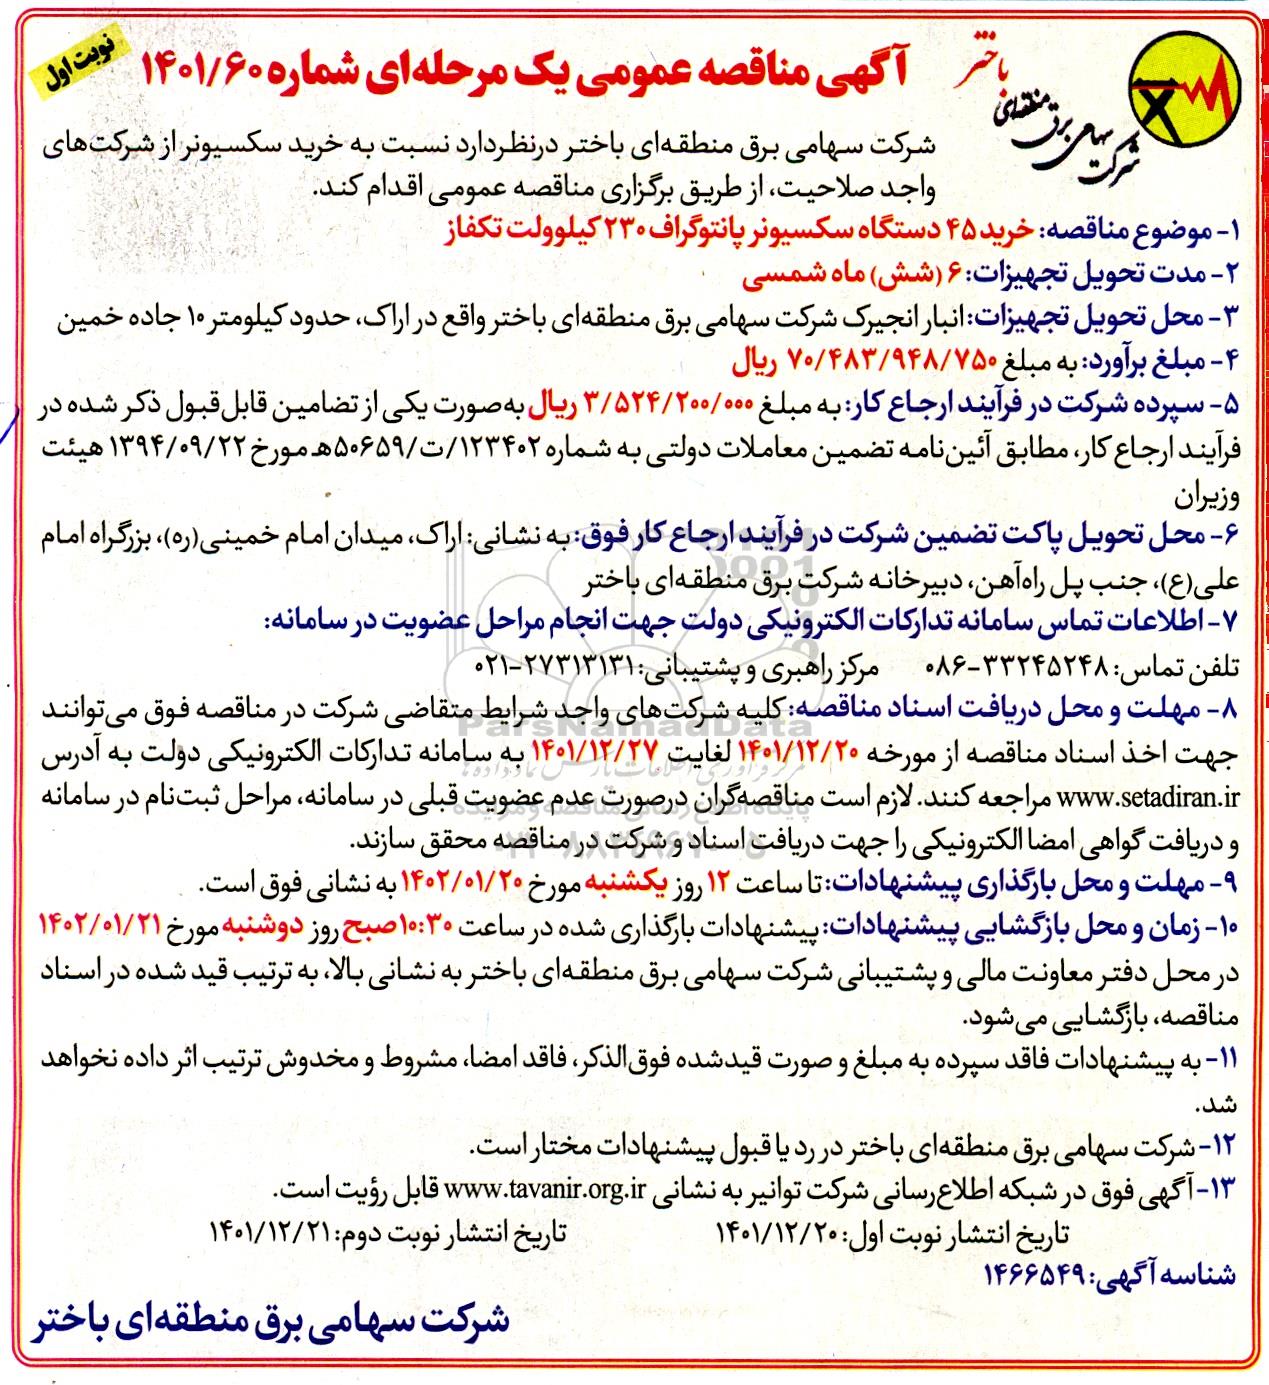 نوبت اول
باختر
شرکت سهامی برق منطقه‌ای
آگهی مناقصه عمومی یک مرحله‌ای شماره ۱۴۰۱/۶۰
شرکت سهامی برق منطقه‌ای باختر درنظردارد نسبت به خرید سکسیونر از شرکت‌های
واجد صلاحیت، از طریق برگزاری مناقصه عمومی اقدام کند.
۱- موضوع مناقصه: خرید ۴۵ دستگاه سکسیونر پانتوگراف ۲۳۰ کیلوولت تکفاز
۲- مدت تحویل تجهیزات: ۶ (شش) ماه شمسی
۳- محل تحویل تجهیزات: انبار انجیرک شرکت سهامی برق منطقه‌ای باختر واقع در اراک، حدود کیلومتر ۱۰ جاده خمین
۴- مبلغ برآورد: به مبلغ ۷۰/۴۸۳/۹۴۸/۷۵۰ ریال
۵- سپرده شرکت در فرآیند ارجاع کار: به مبلغ ۳/۵۲۴/۲۰۰/۰۰۰ ریال به‌صورت یکی از تضامین قابل‌قبول ذکر شده در
فرآیند ارجاع کار، مطابق آئین‌نامه تضمین معاملات دولتی به شماره ۱۲۳۴۰۲/ت/۵۰۶۵۹هـ مورخ ۱۳۹۴/۰۹/۲۲ هیئت
وزیران
۶- محل تحویل پاکت تضمین شرکت در فرآیند ارجاع کار فوق: به نشانی: اراک، میدان امام خمینی(ره)، بزرگراه امام
علی(ع)، جنب پل راه‌آهن، دبیرخانه شرکت برق منطقه‌ای باختر
۷- اطلاعات تماس سامانه تدارکات الکترونیکی دولت جهت انجام مراحل عضویت در سامانه:
تلفن تماس: ۳۳۲۴۵۲۴۸-۰۸۶ مرکز راهبری و پشتیبانی: ۲۷۳۱۳۱۳۱-۰۲۱
۸- مهلت و محل دریافت اسناد مناقصه: کلیه شرکت‌های واجد شرایط متقاضی شرکت در مناقصه فوق می‌توانند
جهت اخذ اسناد مناقصه از مورخه ۱۴۰۱/۱۲/۲۰ لغایت ۱۴۰۱/۱۲/۲۷ به سامانه تدارکات الکترونیکی دولت به آدرس
www.setadiran.ir مراجعه کنند. لازم است مناقصه‌گران درصورت عدم عضویت قبلی در سامانه، مراحل ثبت‌نام در سامانه
و دریافت گواهی امضا الکترونیکی را جهت دریافت اسناد و شرکت در مناقصه محقق سازند.
۹- مهلت و محل بارگذاری پیشنهادات: تا ساعت ۱۲ روز یکشنبه مورخ ۱۴۰۲/۰۱/۲۰ به نشانی فوق است.
۱۰- زمان و محل بازگشایی پیشنهادات: پیشنهادات بارگذاری شده در ساعت ۱۰:۳۰ صبح روز دوشنبه مورخ ۱۴۰۲/۰۱/۲۱
در محل دفتر معاونت مالی و پشتیبانی شرکت سهامی برق منطقه‌ای باختر به نشانی بالا، به ترتیب قید شده در اسناد
مناقصه، بازگشایی می‌شود.
۱۱- به پیشنهادات فاقد سپرده به مبلغ و صورت قیدشده فوق‌الذکر، فاقد امضا، مشروط و مخدوش ترتیب اثر داده نخواهد
شد.
۱۲- شرکت سهامی برق منطقه‌ای باختر در رد یا قبول پیشنهادات مختار است.
۱۳- آگهی فوق در شبکه اطلاع‌رسانی شرکت توانیر به نشانی www.tavanir.org.ir قابل رؤیت است.
تاریخ انتشار نوبت اول: ۱۴۰۱/۱۲/۲۰ تاریخ انتشار نوبت دوم: ۱۴۰۱/۱۲/۲۱
شناسه آگهی: ۱۴۶۶۵۴۹
شرکت سهامی برق منطقه‌ای باختر
ParsNamadData
مرکز فرآوری اطلاعات پارس نماد داده‌ها
پایگاه اطلاع رسانی مناقصه و مزایده